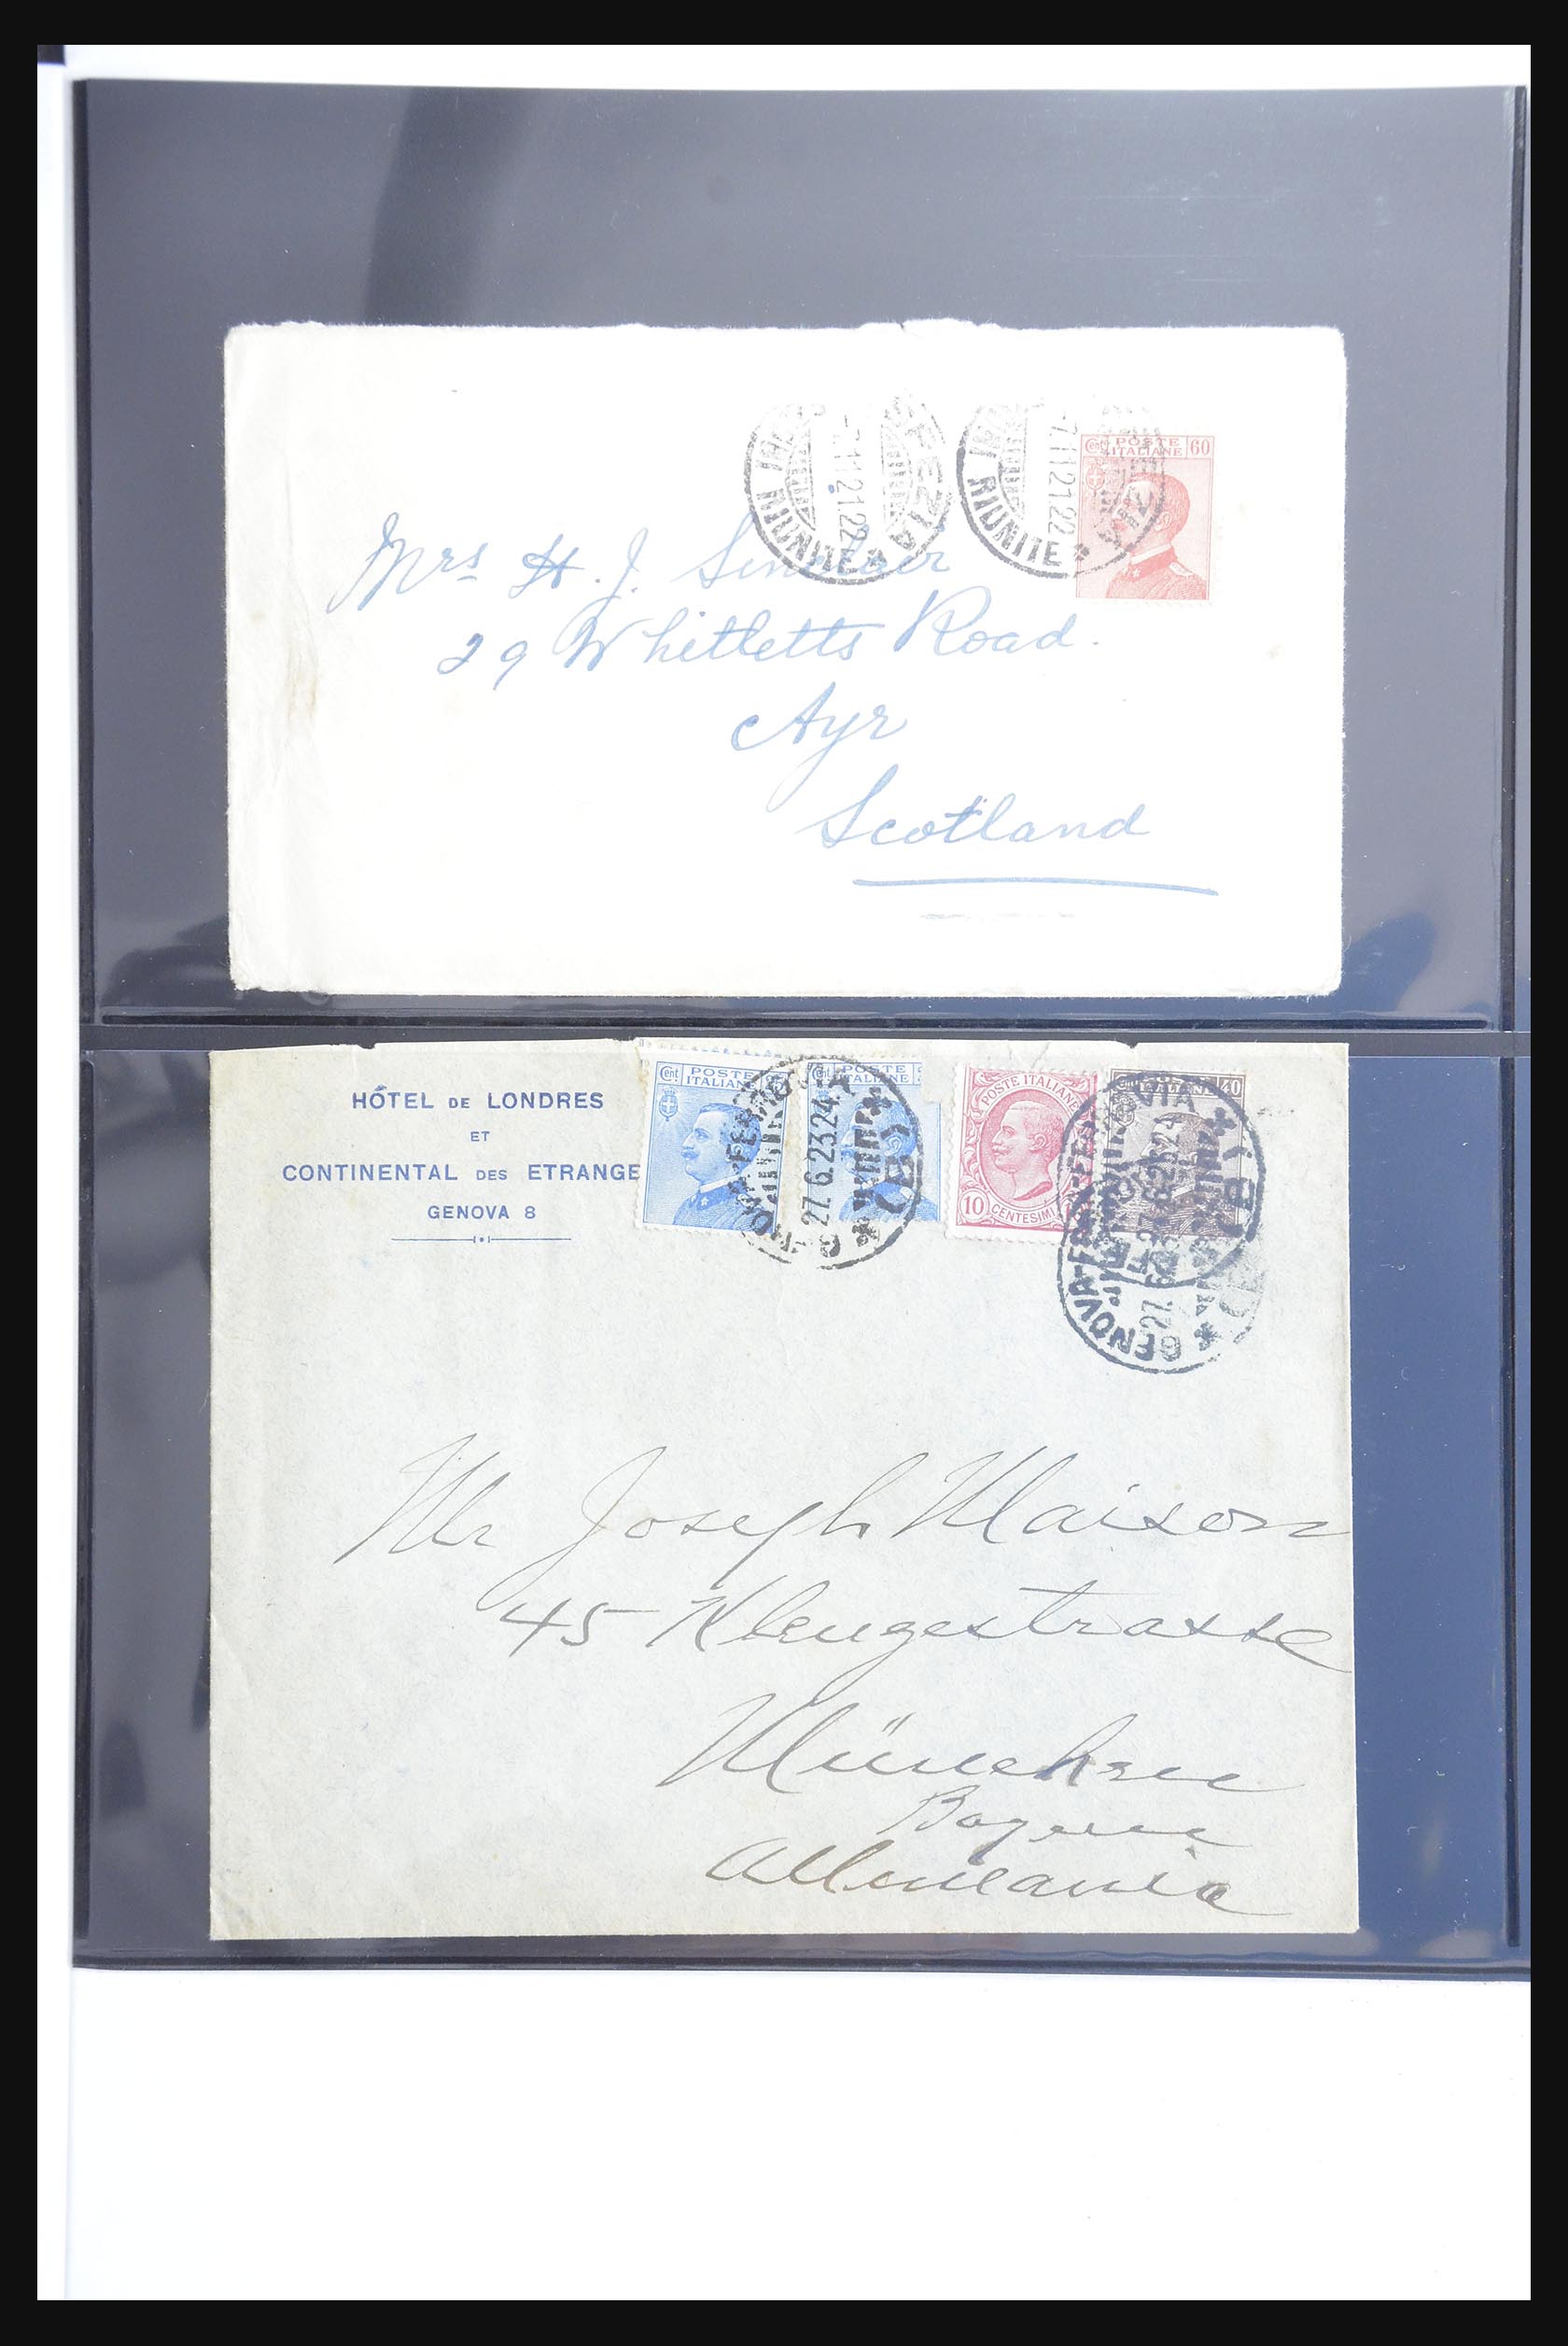 SPEZIA
RIUNITE *
-7.11 21.22
RIUNITE *
-7.11 21.22
Cent POSTE ITALIANE 60
Mrs H. J. Sinclair
29 Whitletts Road.
Ayr
Scotland
HÔTEL DE LONDRES
ET
CONTINENTAL DES ETRANGE
GENOVA 8
Cent POSTE ITALIANE 25
Cent POSTE ITALIANE
POSTE ITALIANE
10 CENTESIMI
ITALIANE 40
27.6.23 24
27.6.23 24
GENOVA-FERROVIA
Mr Joseph Maison
45 Klengestrasse
München
Bayern
Allemania